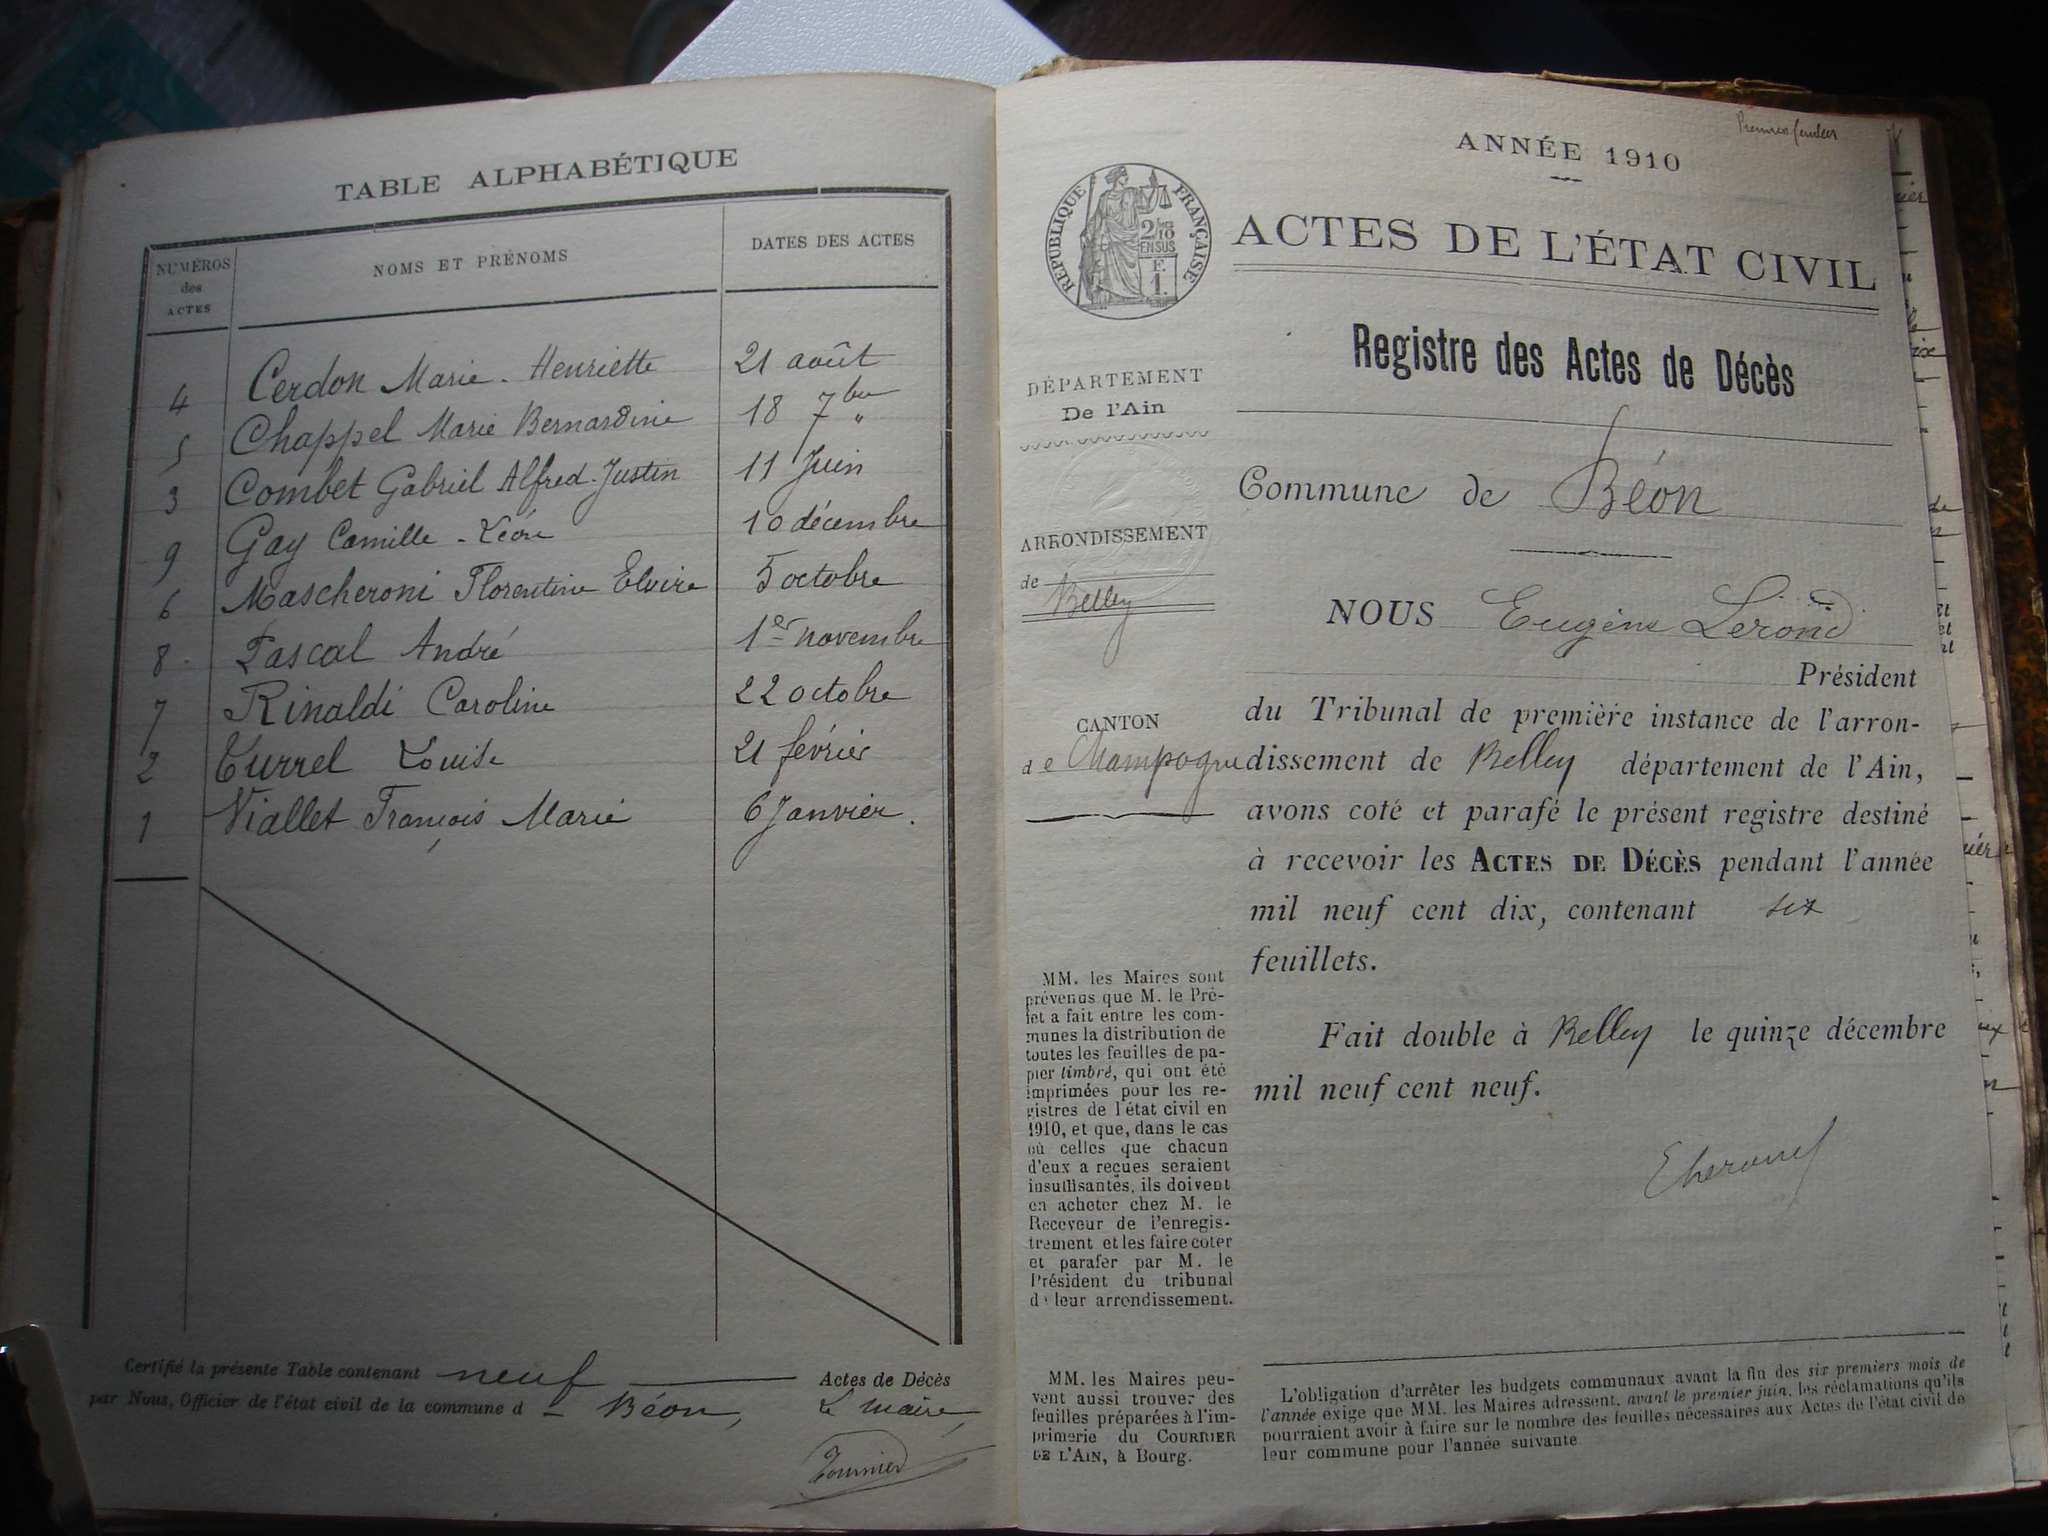 TABLE ALPHABÉTIQUE
NUMÉROS
des
ACTES
NOMS ET PRÉNOMS
DATES DES ACTES
4 Cerdon Marie-Henriette 21 août
5 Chappel Marie Bernardine 18 7bre "
3 Combet Gabriel Alfred-Justin 11 Juin
9 Gay Camille-Léon 10 décembre
6 Mascheroni Florentine Elvire 5 octobre
8 Pascal André 1er novembre
7 Rinaldi Caroline 22 octobre
2 Turrel Louise 21 février
1 Viallet François Marie 6 Janvier.
Certifié la présente Table contenant neuf Actes de Décès
par Nous, Officier de l'état civil de la commune d - Béon,
Le maire,
Tournier
Premier feuillet
ANNÉE 1910
RÉPUBLIQUE FRANÇAISE
2/10
EN SUS
F.
1.
ACTES DE L'ÉTAT CIVIL
Registre des Actes de Décès
DÉPARTEMENT
De l'Ain
ARRONDISSEMENT
de Belley
CANTON
de Champagne
Commune de Béon
NOUS Eugène Lerond
Président
du Tribunal de première instance de l'arron-
dissement de Belley département de l'Ain,
avons coté et parafé le présent registre destiné
à recevoir les ACTES DE DÉCÈS pendant l'année
mil neuf cent dix, contenant six
feuillets.
Fait double à Belley le quinze décembre
mil neuf cent neuf.
MM. les Maires sont
prévenus que M. le Pré-
fet a fait entre les com-
munes la distribution de
toutes les feuilles de pa-
pier timbré, qui ont été
imprimées pour les re-
gistres de l'état civil en
1910, et que, dans le cas
où celles que chacun
d'eux a reçues seraient
insuffisantes, ils doivent
en acheter chez M. le
Receveur de l'enregis-
trement et les faire coter
et parafer par M. le
Président du tribunal
de leur arrondissement.
MM. les Maires peu-
vent aussi trouver des
feuilles préparées à l'im-
primerie du COURRIER
DE L'AIN, à Bourg.
L'obligation d'arrêter les budgets communaux avant la fin des six premiers mois de
l'année exige que MM. les Maires adressent, avant le premier juin, les réclamations qu'ils
pourraient avoir à faire sur le nombre des feuilles nécessaires aux Actes de l'état civil de
leur commune pour l'année suivante